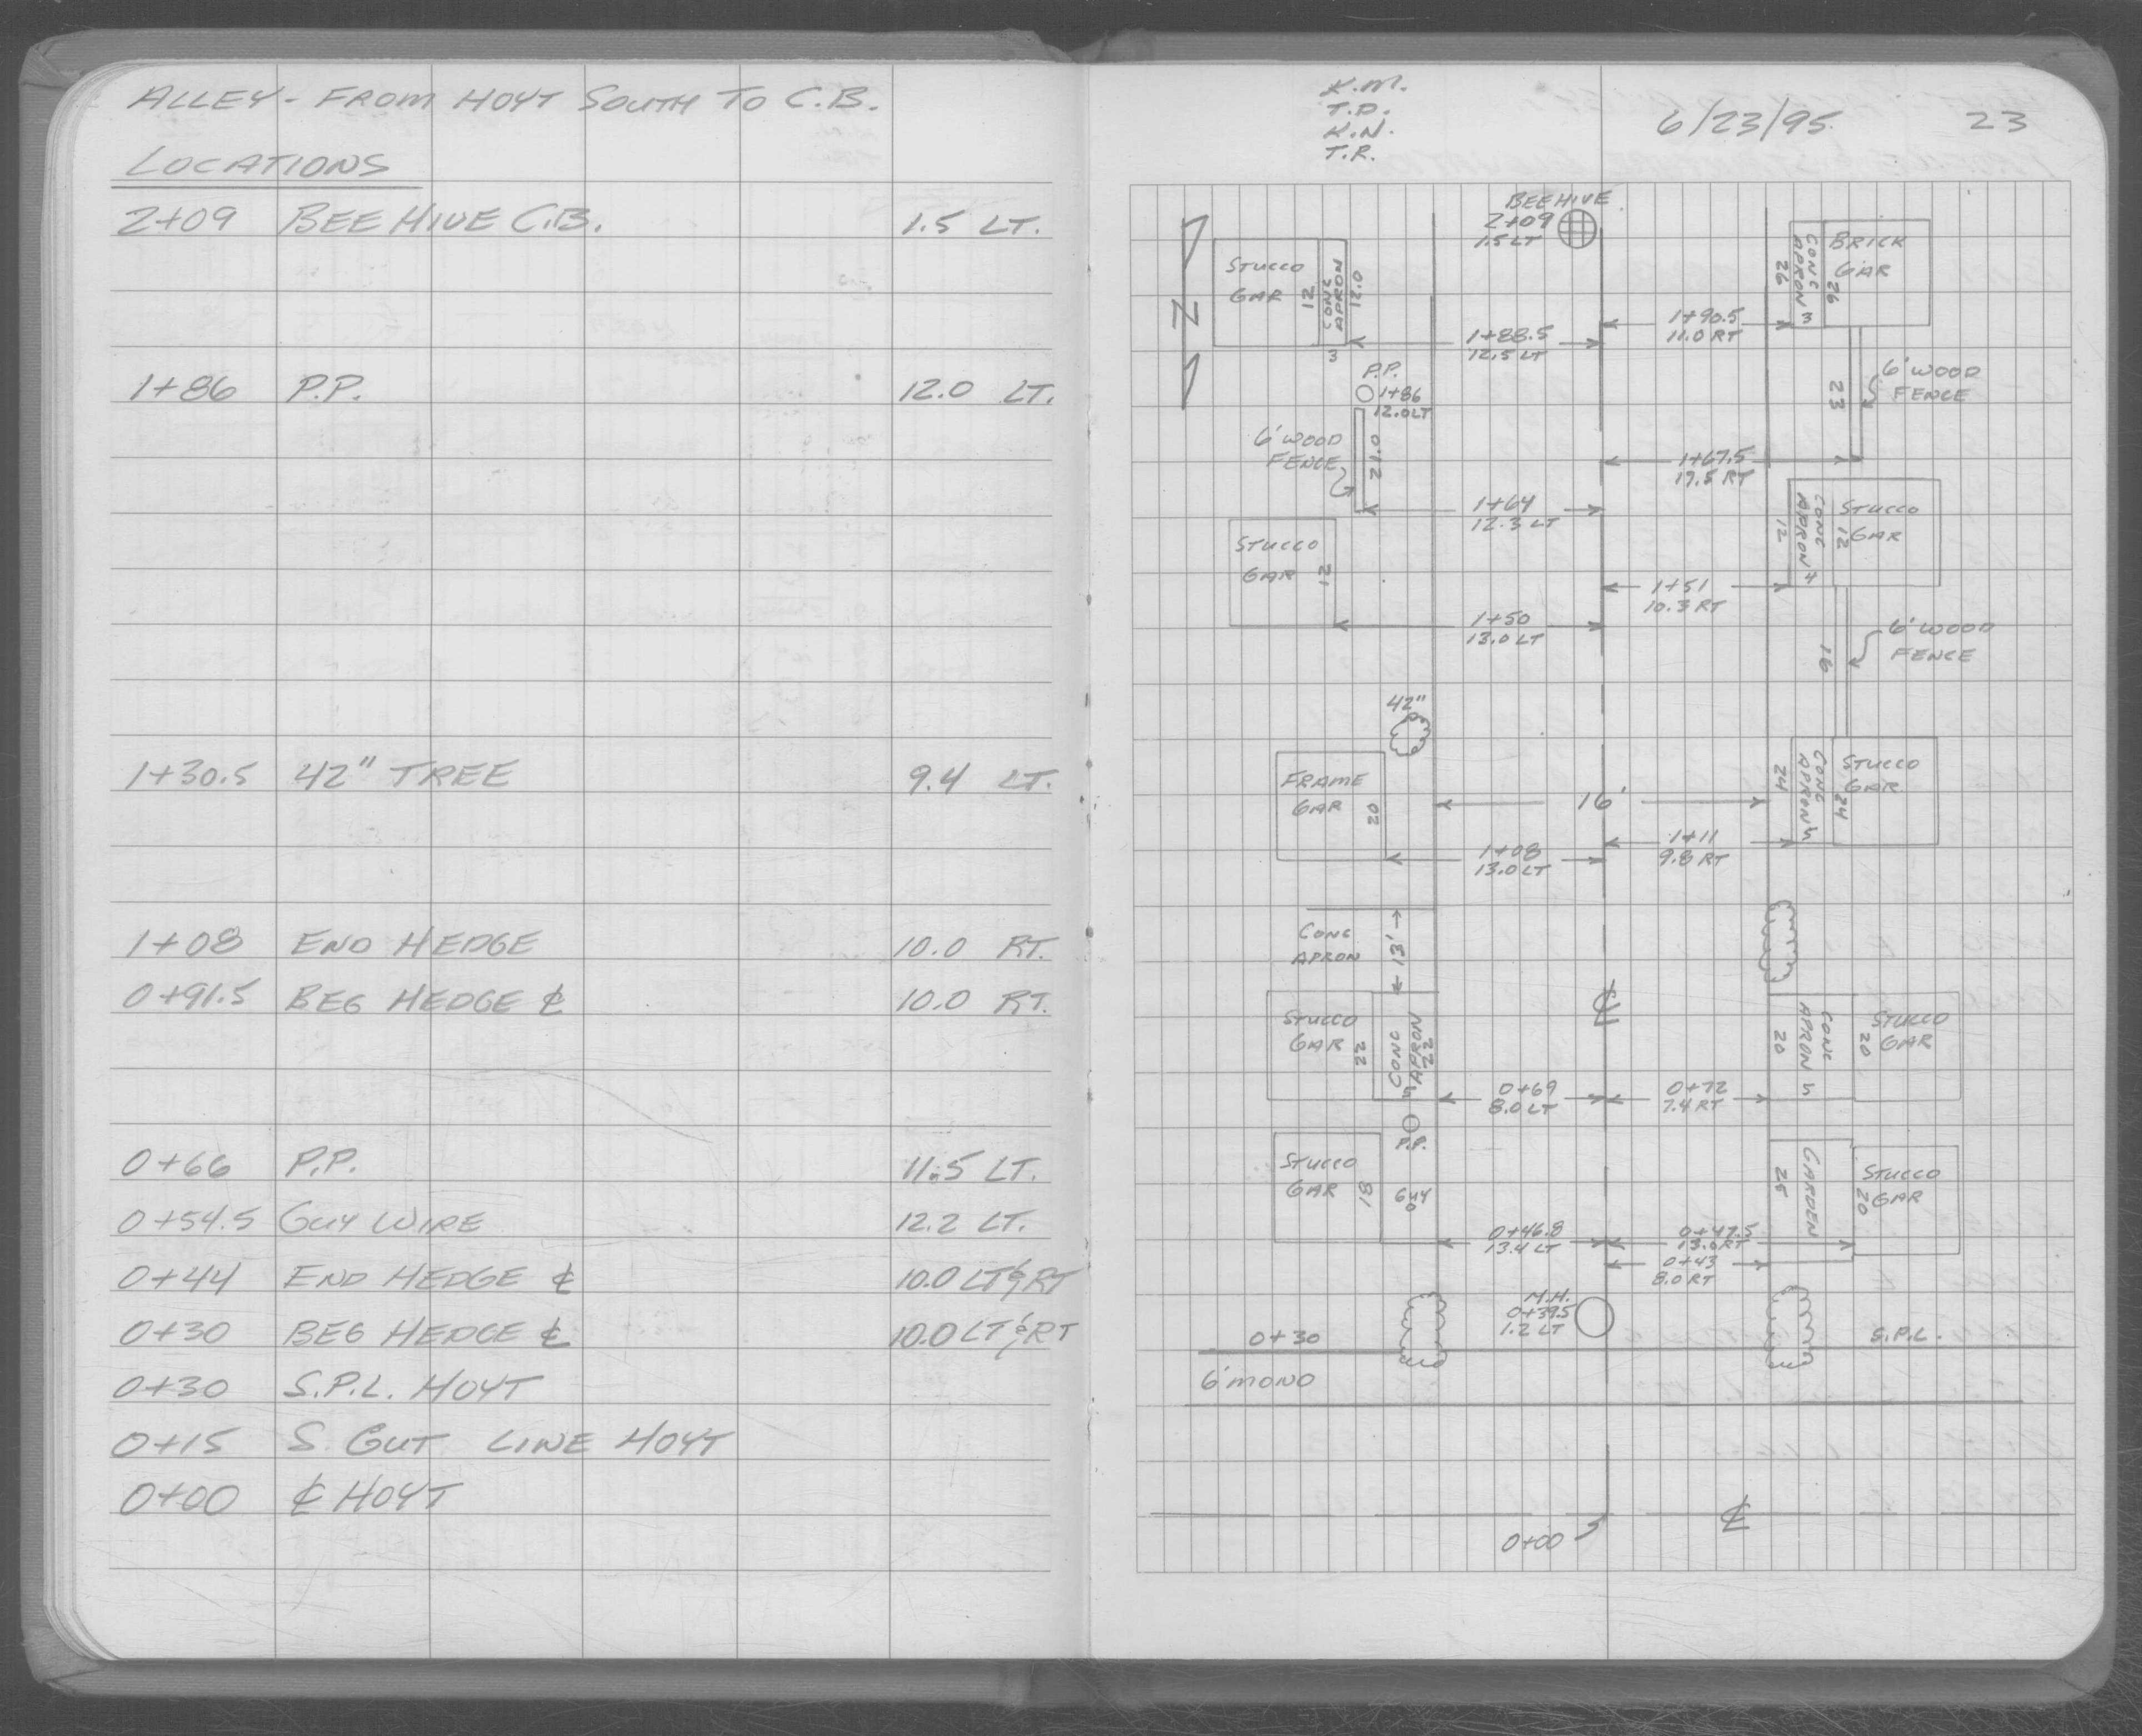 ALLEY - FROM HOYT SOUTH TO C.B.
LOCATIONS
2+09 BEEHIVE C.B. 1.5 LT.
1+86 P.P. 12.0 LT.
1+30.5 42" TREE 9.4 LT.
1+08 END HEDGE 10.0 RT.
0+91.5 BEG HEDGE ℄ 10.0 RT.
0+66 P.P. 11.5 LT.
0+54.5 GUY WIRE 12.2 LT.
0+44 END HEDGE ℄ 10.0 LT & RT
0+30 BEG HEDGE ℄ 10.0 LT & RT
0+30 S.P.L. HOYT
0+15 S. GUT LINE HOYT
0+00 ℄ HOYT
K.M.
T.D.
K.N.
T.R.
6/23/95 23
N
BEEHIVE
2+09
1.5 LT
STUCCO
GAR
12
CONC
APRON
12.0
3
BRICK
GAR
26
CONC
APRON
26
3
1+88.5
12.5 LT
1+90.5
11.0 RT
P.P.
1+86
12.0 LT
6' WOOD
FENCE
21.0
6' WOOD
FENCE
23
1+67.5
17.5 RT
1+64
12.3 LT
STUCCO
GAR
12
CONC
APRON
12
4
STUCCO
GAR
12
1+51
10.3 RT
1+50
13.0 LT
6' WOOD
FENCE
16
42"
FRAME
GAR
20
16'
CONC
APRON
24
5
STUCCO
GAR
24
1+11
9.8 RT
1+08
13.0 LT
CONC
APRON
13'
℄
STUCCO
GAR
22
CONC
APRON
22
5
CONC
APRON
20
5
STUCCO
GAR
20
0+69
8.0 LT
0+72
7.4 RT
P.P.
STUCCO
GAR
18
GUY
GARDEN
25
STUCCO
GAR
20
0+46.8
13.4 LT
0+47.5
13.0 RT
0+43
8.0 RT
M.H.
0+39.5
1.2 LT
0+30
S.P.L.
6' MONO
℄
0+00